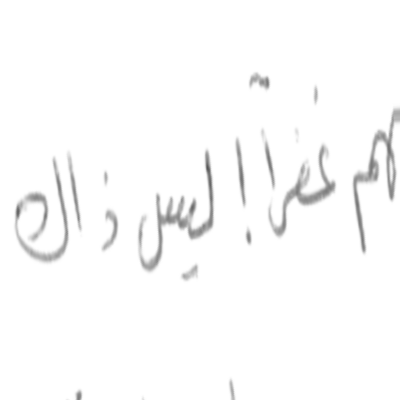 هم غفرا! ليس ذاك